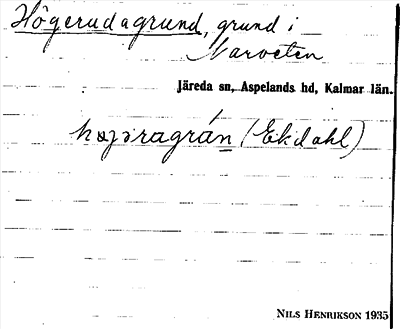 Högerudagrund, grund i
Narveten
Järeda sn, Aspelands hd, Kalmar län.
høʒəragrán (Ekdahl)
NILS HENRIKSON 1935